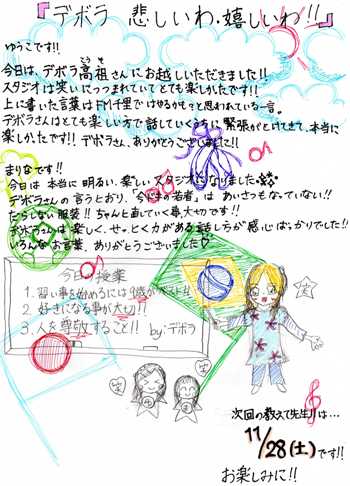 『デボラ 悲しいわ・嬉しいわ!!』
ゆうこです!!
こうそ
今日は、デボラ高祖さんにお越しいただきました!!
スタジオは笑いにつつまれていてとても楽しかったです!!
上に書いた言葉はFM千里ではやるかも?と思われている一言。
デボラさんはとても楽しい方で話していくうちに緊張がとけてきて、本当に
楽しかったです!! デボラさん、ありがとうございました!!
まりなです!!
今日は本当に明るい、楽しいスタジオになりました
デボラさんの言うとおり、「今どきの若者」は あいさつもなっていない!!
だらしない服装!! ちゃんと直していく事大切です!!
デボラさんは楽しく、せっとくカがある話しかたが感心ばっかりでした!!
いろんなお言葉、ありがとうございました♡
今日の授業
1. 習い事を始めるには9歳がベスト!!
2. 好きになる事が大切!!
3. 人を尊敬すること!! by:デボラ
笑
笑
笑
次回の教えて先生!!は…
11/28(土)です!!
お楽しみに!!